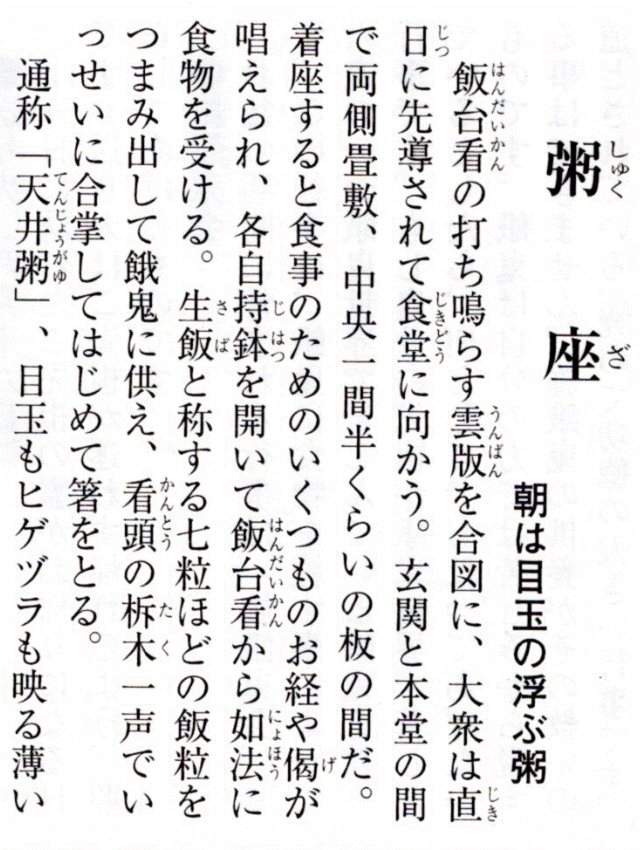 粥座
朝は目玉の浮ぶ粥
飯台看の打ち鳴らす雲版を合図に、大衆は直
日に先導されて食堂に向かう。玄関と本堂の間
で両側畳敷、中央一間半くらいの板の間だ。
着座すると食事のためのいくつものお経や偈が
唱えられ、各自持鉢を開いて飯台看から如法に
食物を受ける。生飯と称する七粒ほどの飯粒を
つまみ出して餓鬼に供え、看頭の柝木一声でい
っせいに合掌してはじめて箸をとる。
通称「天井粥」、目玉もヒゲヅラも映る薄い